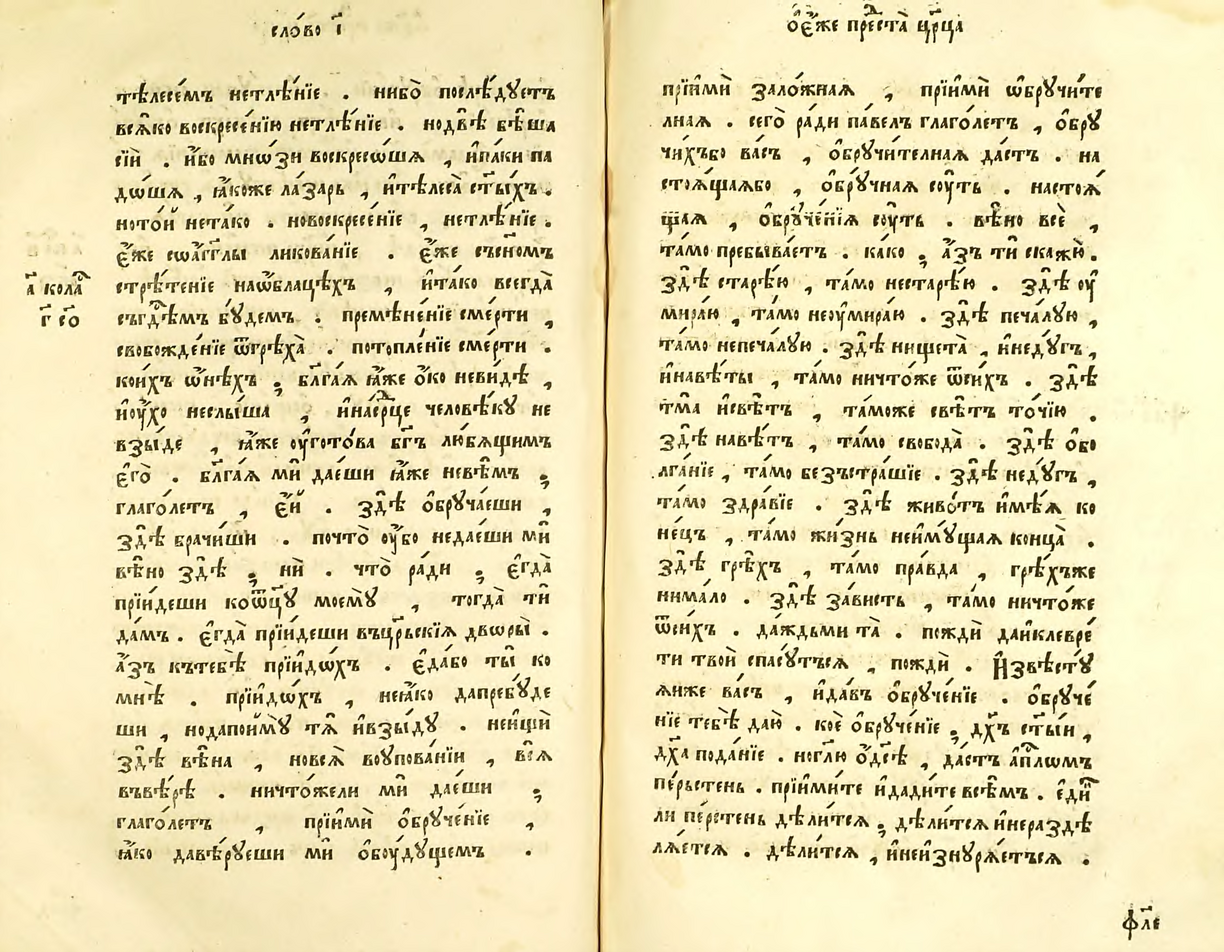 сло́во і҃
тѣлесе́мъ нетлѣ́нїе . нибо̀ послѣ́дꙋетъ
вся́ко воскресе́нїю нетлѣ́нїе . нодвѣ̀ бѣ́ша
сїѝ . и҆́бо мнѡ́зи воскресѡ́шѧ , и҆па́ки па
дѡ́шѧ , ꙗ҆́коже ла́зарь , и҆тѣлеса̀ ст҃ы́хъ .
ното́й нета́ко . новоскресе́нїе , нетлѣ́нїе .
є҆́же сѡа҆́гг҃лы ликова́нїе . є҆́же съсн҃омъ
стрѣ́тенїе наѡ҆́блацѣхъ , и҆та́ко всегда̀
съгдⷭ҇ѣмъ бꙋ́демъ . премѣне́нїе сме́рти ,
а҃ кола́
г҃ со҃
свобожде́нїе ѿгрѣха̀ . потопле́нїе сме́рти .
кои́хъ ѡ҆нѣ́хъ ; бл҃га́ѧ ꙗ҆́же о҆́ко неви́дѣ ,
и҆ᲂу҆́хо неслы́ша , и҆насрⷣце человѣ́кꙋ не
взы́де , ꙗ҆́же ᲂу҆гото́ва бг҃ъ лю́бящимъ
є҆го̀ . бл҃га́ѧ мѝ дае́ши ꙗ҆́же невѣ́мъ ;
глаго́летъ , є҆́й . здѣ̀ ѻ҆брꙋча́еши ,
здѣ̀ врачи́ши . почто̀ ᲂу҆́бо недае́ши мѝ
вѣ́но здѣ̀ ; нѝ . что̀ ра́ди ; є҆гда̀
прїи́деши коѿц҃ꙋ̀ моемꙋ̀ , тогда̀ тѝ
да́мъ . є҆гда̀ прїи́деши въцрⷭ҇кїѧ дворы̀ .
а҆́зъ кътебѣ̀ прїидо́хъ . є҆да́бо ты̀ ко
мнѣ̀ . прїидо́хъ , неꙗ҆́ко дапребꙋ́де
ши , нодапои́мꙋ тѧ̀ и҆взы́дꙋ . неищѝ
здѣ̀ вѣ́на , новсѧ̀ воᲂупова́нїи , всѧ̀
въвѣ́рѣ . ничто́жели мѝ дае́ши ;
глаго́летъ , прїимѝ ѻ҆брꙋче́нїе ,
ꙗ҆́ко давѣ́рꙋеши мѝ ѻ҆бᲂу҆дꙋ́щемъ .
ѻ҆є҆́же преста̀ цр҃ца
прїимѝ зало́жнаѧ , прїимѝ ѡ҆брꙋчи́те
лнаѧ . сего̀ ра́ди па́велъ глаго́летъ , ѻ҆брꙋ
чи́хъбо ва́съ , ѻ҆брꙋчи́телнаѧ да́стъ . на
стоѧ́щаѧбо , ѻ҆брꙋ́чнаѧ сꙋ́ть . настоѧ́
щаѧ , ѻ҆брꙋче́нїѧ сꙋ́ть . вѣ́но всѐ ,
та́мо пребыва́етъ . ка́ко ; а҆́зъ тѝ скажꙋ̀ .
здѣ̀ старѣ́ю , та́мо нестарѣ́ю . здѣ̀ ᲂу҆
мира́ю , та́мо неᲂу҆мира́ю . здѣ̀ печа́лꙋю ,
та́мо непеча́лꙋю . здѣ̀ нищета̀ , и҆недꙋ́гъ ,
и҆навѣ́ты , та́мо ничто́же ѿси́хъ . здѣ̀
тма̀ и҆свѣ́тъ , та́може свѣ́тъ то́чїю .
здѣ̀ навѣ́тъ , та́мо свобо́да . здѣ̀ ѻ҆бо
лга́нїе , та́мо безъстра́шїе . здѣ̀ недꙋ́гъ ,
та́мо здра́вїе . здѣ̀ живо́тъ и҆мѣ́ѧ ко
не́цъ , та́мо жи́знь неимꙋ́щаѧ конца̀ .
здѣ̀ грѣ́хъ , та́мо пра́вда , грѣ́хъже
нима́ло . здѣ̀ за́висть , та́мо ничто́же
ѿси́хъ . да́ждьми та̀ . пождѝ дайклевре́
ти твоѝ спасꙋ́тъсѧ , пождѝ . И҆звѣ́стꙋ
ѧиже ва́съ , и҆да́въ ѻ҆брꙋче́нїе . ѻ҆брꙋче́
нїе тебѣ̀ даю̀ . коѐ ѻ҆брꙋче́нїе ; дх҃ъ ст҃ы́и ,
дх҃а пода́нїе . ноглю̀ ѻ҆дсѣ̀ , да́стъ а҆пⷭ҇лѡмъ
пе́рьстень . прїими́те и҆дади́те всѣ́мъ . є҆ди
ли пе́рстень дѣ́литсѧ ; дѣ́литсѧ и҆нераздѣ
лѧ́етсѧ . дѣ́литсѧ , и҆неизнꙋрѧ́етъсѧ .
фл҃е